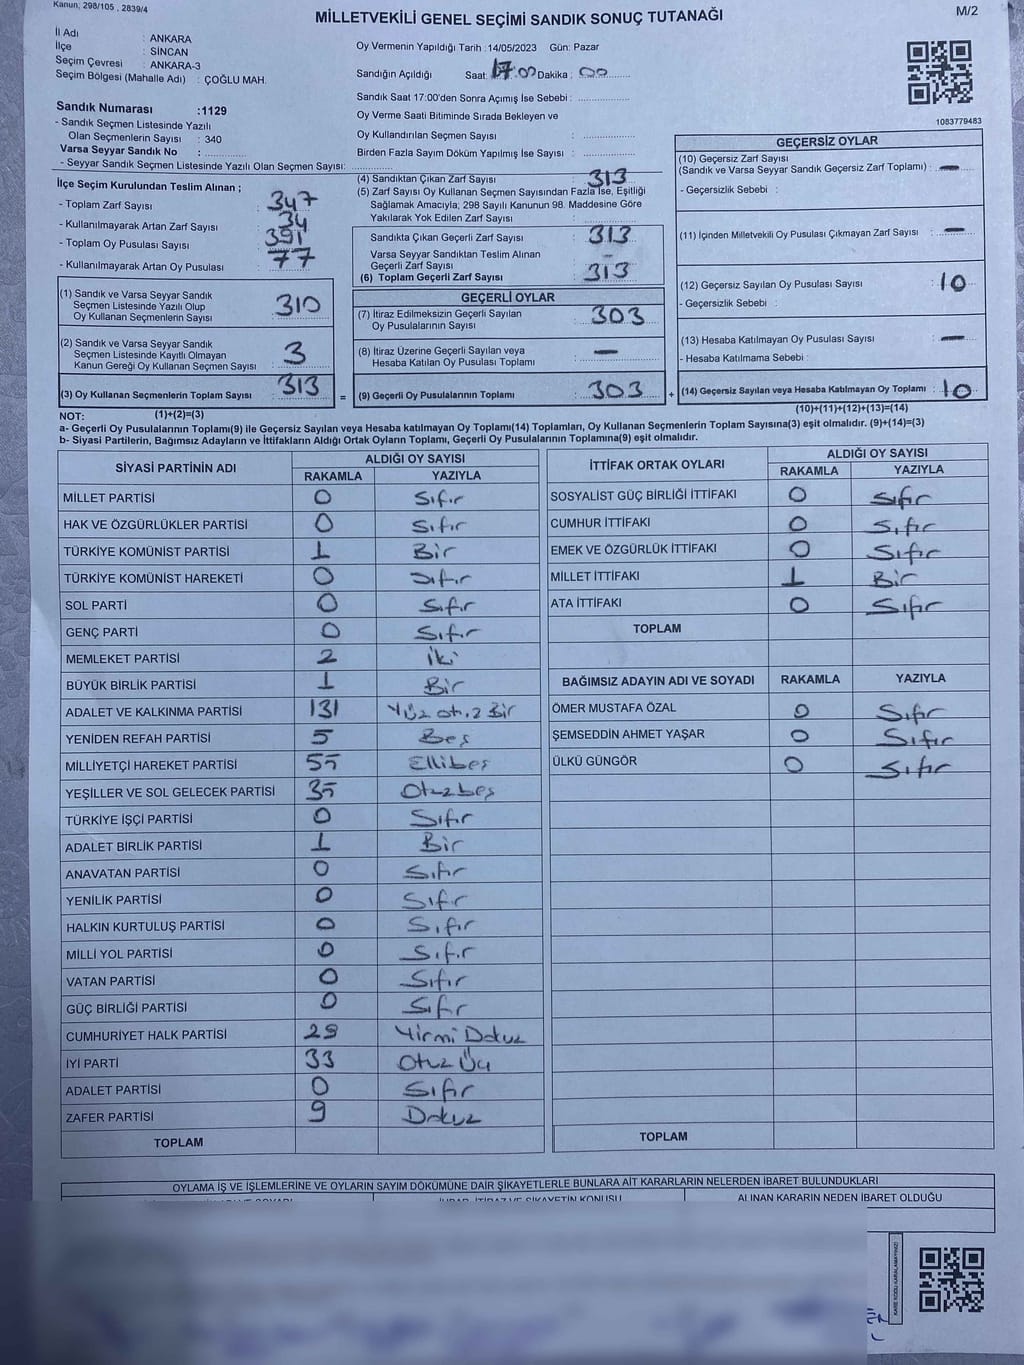 Kanun, 298/105 , 2839/4
MİLLETVEKİLİ GENEL SEÇİMİ SANDIK SONUÇ TUTANAĞI
M/2
İl Adı : ANKARA
İlçe : SİNCAN
Seçim Çevresi : ANKARA-3
Seçim Bölgesi (Mahalle Adı) : ÇOĞLU MAH.
Oy Vermenin Yapıldığı Tarih :14/05/2023 Gün: Pazar
Sandığın Açıldığı Saat: 17:00 Dakika : 00
Sandık Saat 17:00'den Sonra Açımış İse Sebebi :
Oy Verme Saati Bitiminde Sırada Bekleyen ve
Oy Kullandırılan Seçmen Sayısı :
Birden Fazla Sayım Döküm Yapılmış İse Sayısı :
1083779483
Sandık Numarası :1129
- Sandık Seçmen Listesinde Yazılı
Olan Seçmenlerin Sayısı : 340
Varsa Seyyar Sandık No :
- Seyyar Sandık Seçmen Listesinde Yazılı Olan Seçmen Sayısı:
İlçe Seçim Kurulundan Teslim Alınan ;
- Toplam Zarf Sayısı : 347
- Kullanılmayarak Artan Zarf Sayısı : 34
- Toplam Oy Pusulası Sayısı : 391
- Kullanılmayarak Artan Oy Pusulası : 77
(1) Sandık ve Varsa Seyyar Sandık
Seçmen Listesinde Yazılı Olup
Oy Kullanan Seçmenlerin Sayısı : 310
(2) Sandık ve Varsa Seyyar Sandık
Seçmen Listesinde Kayıtlı Olmayan
Kanun Gereği Oy Kullanan Seçmen Sayısı : 3
(3) Oy Kullanan Seçmenlerin Toplam Sayısı : 313 =
(1)+(2)=(3)
(4) Sandıktan Çıkan Zarf Sayısı : 313
(5) Zarf Sayısı Oy Kullanan Seçmen Sayısından Fazla İse, Eşitliği
Sağlamak Amacıyla; 298 Sayılı Kanunun 98. Maddesine Göre
Yakılarak Yok Edilen Zarf Sayısı :
Sandıkta Çıkan Geçerli Zarf Sayısı : 313
Varsa Seyyar Sandıktan Teslim Alınan
Geçerli Zarf Sayısı : –
(6) Toplam Geçerli Zarf Sayısı : 313
GEÇERLİ OYLAR
(7) İtiraz Edilmeksizin Geçerli Sayılan
Oy Pusulalarının Sayısı : 303
(8) İtiraz Üzerine Geçerli Sayılan veya
Hesaba Katılan Oy Pusulası Toplamı : –
(9) Geçerli Oy Pusulalarının Toplamı : 303 +
GEÇERSİZ OYLAR
(10) Geçersiz Zarf Sayısı
(Sandık ve Varsa Seyyar Sandık Geçersiz Zarf Toplamı) : –
- Geçersizlik Sebebi :
(11) İçinden Milletvekili Oy Pusulası Çıkmayan Zarf Sayısı : –
(12) Geçersiz Sayılan Oy Pusulası Sayısı : 10
- Geçersizlik Sebebi :
(13) Hesaba Katılmayan Oy Pusulası Sayısı : –
- Hesaba Katılmama Sebebi :
(14) Geçersiz Sayılan veya Hesaba Katılmayan Oy Toplamı : 10
(10)+(11)+(12)+(13)=(14)
NOT:
a- Geçerli Oy Pusulalarının Toplamı(9) ile Geçersiz Sayılan veya Hesaba katılmayan Oy Toplamı(14) Toplamları, Oy Kullanan Seçmenlerin Toplam Sayısına(3) eşit olmalıdır. (9)+(14)=(3)
b- Siyasi Partilerin, Bağımsız Adayların ve İttifakların Aldığı Ortak Oyların Toplamı, Geçerli Oy Pusulalarının Toplamına(9) eşit olmalıdır.
SİYASİ PARTİNİN ADI ALDIĞI OY SAYISI
RAKAMLA YAZIYLA
MİLLET PARTİSİ 0 Sıfır
HAK VE ÖZGÜRLÜKLER PARTİSİ 0 Sıfır
TÜRKİYE KOMÜNİST PARTİSİ 1 Bir
TÜRKİYE KOMÜNİST HAREKETİ 0 Sıfır
SOL PARTİ 0 Sıfır
GENÇ PARTİ 0 Sıfır
MEMLEKET PARTİSİ 2 İki
BÜYÜK BİRLİK PARTİSİ 1 Bir
ADALET VE KALKINMA PARTİSİ 131 Yüz otuz Bir
YENİDEN REFAH PARTİSİ 5 Beş
MİLLİYETÇİ HAREKET PARTİSİ 55 Ellibeş
YEŞİLLER VE SOL GELECEK PARTİSİ 35 Otuzbeş
TÜRKİYE İŞÇİ PARTİSİ 0 Sıfır
ADALET BİRLİK PARTİSİ 1 Bir
ANAVATAN PARTİSİ 0 Sıfır
YENİLİK PARTİSİ 0 Sıfır
HALKIN KURTULUŞ PARTİSİ 0 Sıfır
MİLLİ YOL PARTİSİ 0 Sıfır
VATAN PARTİSİ 0 Sıfır
GÜÇ BİRLİĞİ PARTİSİ 0 Sıfır
CUMHURİYET HALK PARTİSİ 29 Yirmi Dokuz
İYİ PARTİ 33 Otuz Üç
ADALET PARTİSİ 0 Sıfır
ZAFER PARTİSİ 9 Dokuz
TOPLAM
İTTİFAK ORTAK OYLARI ALDIĞI OY SAYISI
RAKAMLA YAZIYLA
SOSYALİST GÜÇ BİRLİĞİ İTTİFAKI 0 Sıfır
CUMHUR İTTİFAKI 0 Sıfır
EMEK VE ÖZGÜRLÜK İTTİFAKI 0 Sıfır
MİLLET İTTİFAKI 1 Bir
ATA İTTİFAKI 0 Sıfır
TOPLAM
BAĞIMSIZ ADAYIN ADI VE SOYADI RAKAMLA YAZIYLA
ÖMER MUSTAFA ÖZAL 0 Sıfır
ŞEMSEDDİN AHMET YAŞAR 0 Sıfır
ÜLKÜ GÜNGÖR 0 Sıfır
TOPLAM
OYLAMA İŞ VE İŞLEMLERİNE VE OYLARIN SAYIM DÖKÜMÜNE DAİR ŞİKAYETLERLE BUNLARA AİT KARARLARIN NELERDEN İBARET BULUNDUKLARI
İHBAR, İTİRAZ VE ŞİKAYETİN KONUSU ALINAN KARARIN NEDEN İBARET OLDUĞU